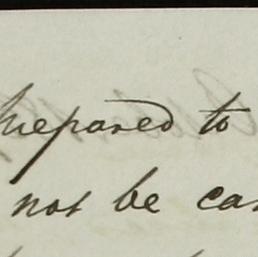 prepared to
not be